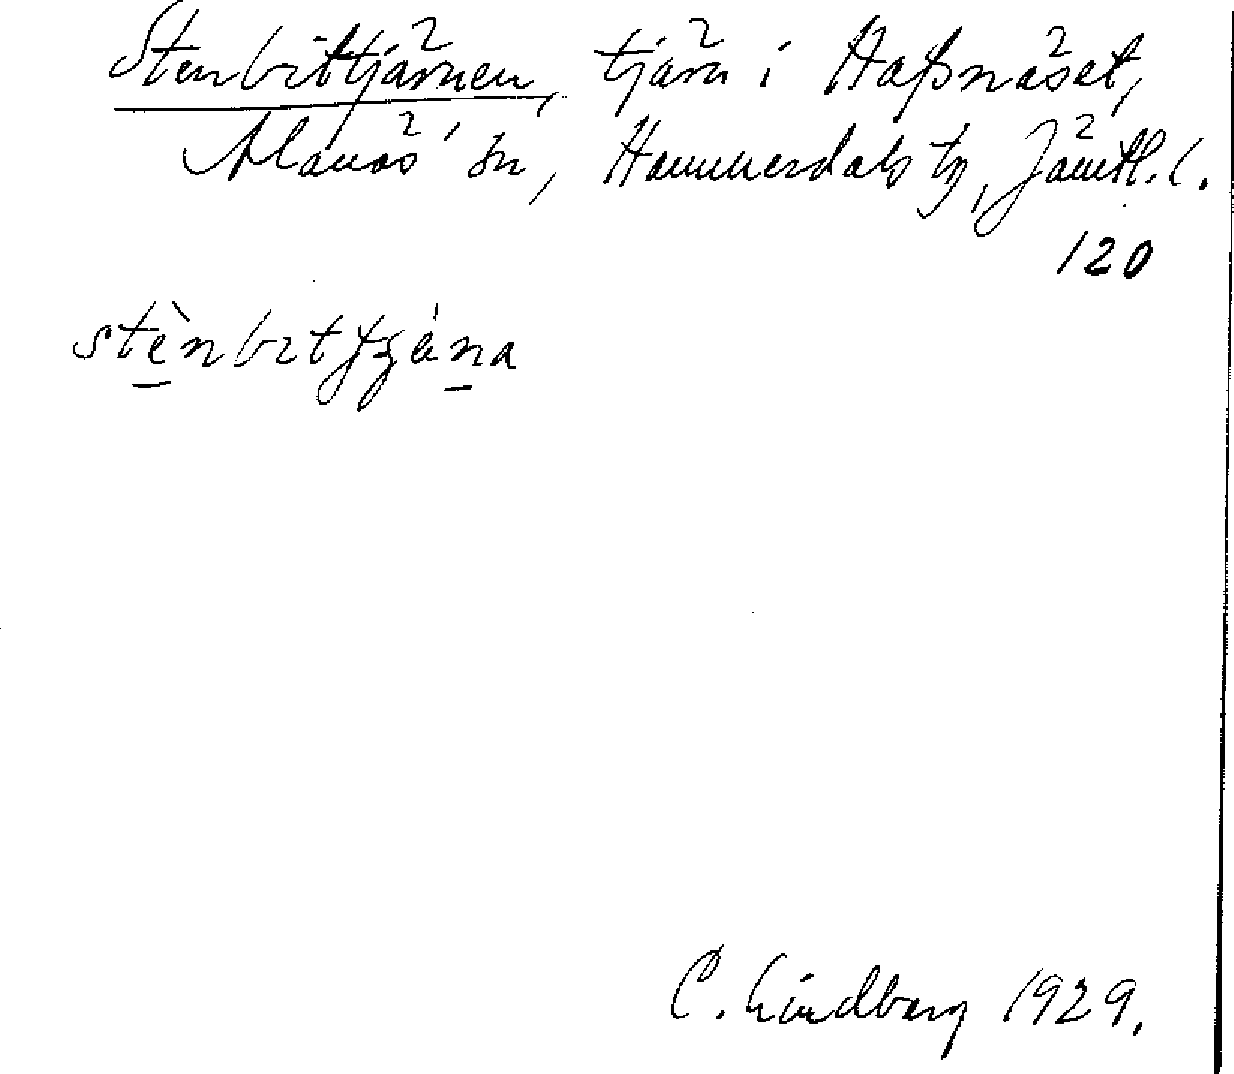 Stenbittjärnen, tjärn i Haßnäset,
Alanäs sn, Hammerdals tg, Jämtl. l.
120
C. Lindberg 1929.